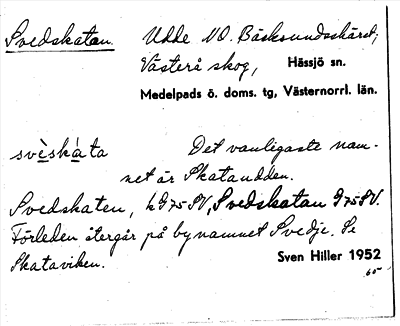 Svedskatan. Udde NO. Bäcksundsskäret;
Västerå skog, Hässjö sn.
Medelpads ö. doms. tg, Västernorrl. län.
svèskàta Det vanligaste nam-
net är Skatandden.
Svedskaten, kG75SV, Svedskatan G75SV.
Förleden återgår på bynamnet Svedje. Se
Skataviken. Sven Hiller 1952